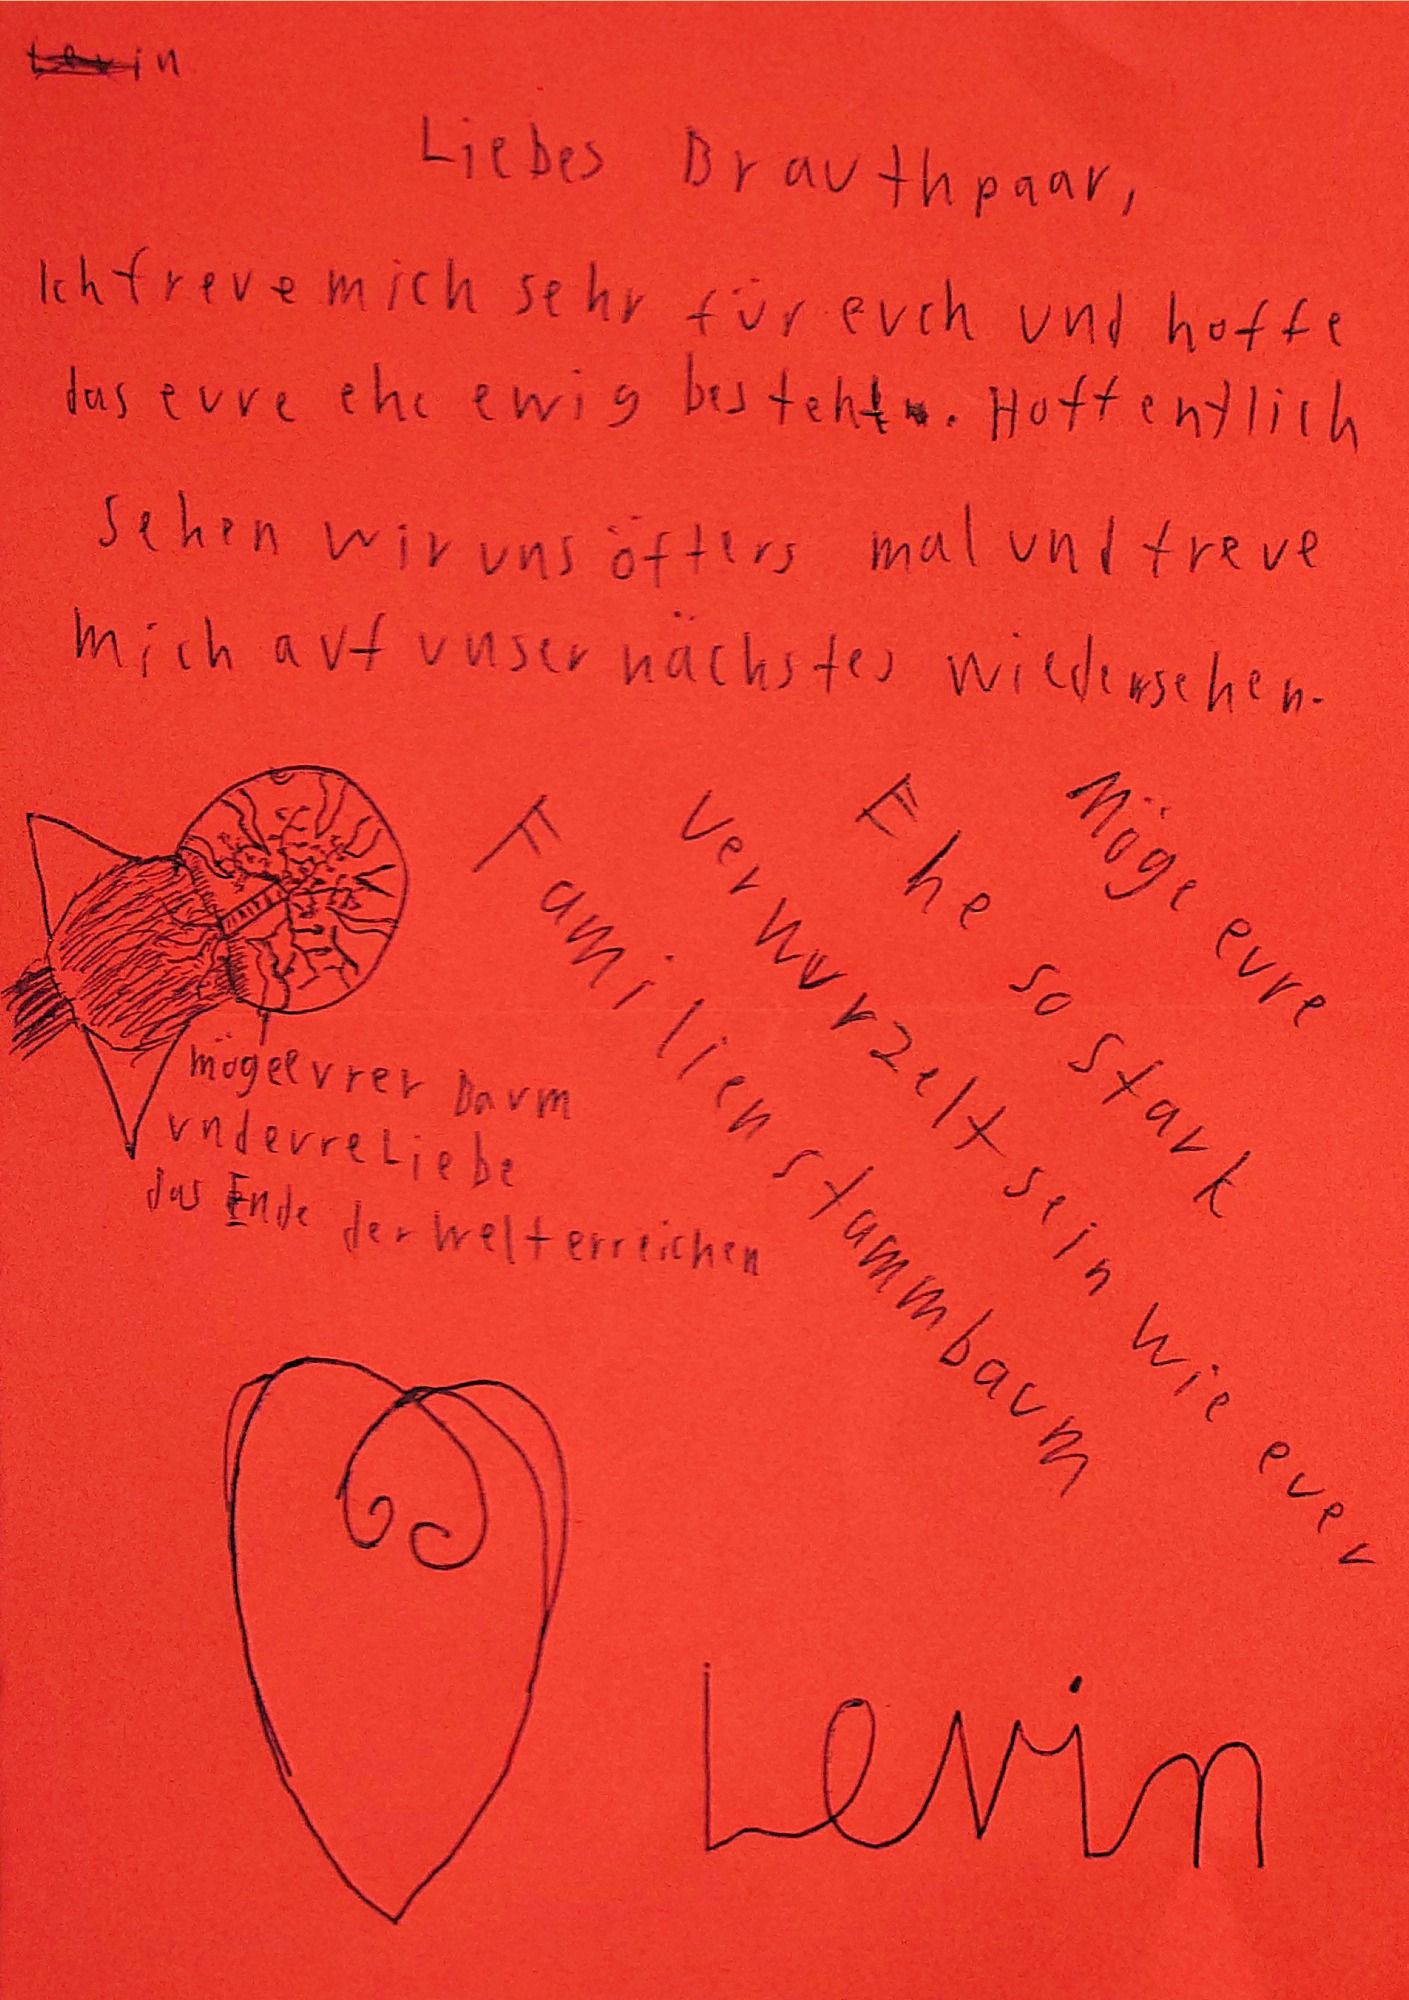 Levin
Liebes Brauthpaar,
Ich freue mich sehr für euch und hoffe
das eure ehe ewig besteht. Hoffentlich
sehen wir uns öfters mal und freue
mich auf unser nächstes wiedersehen.
Möge eure
Ehe so stark
verwurzelt sein wie euer
Familienstammbaum
mögeeurer Baum
und eure Liebe
das Ende der Welt erreichen
Levin